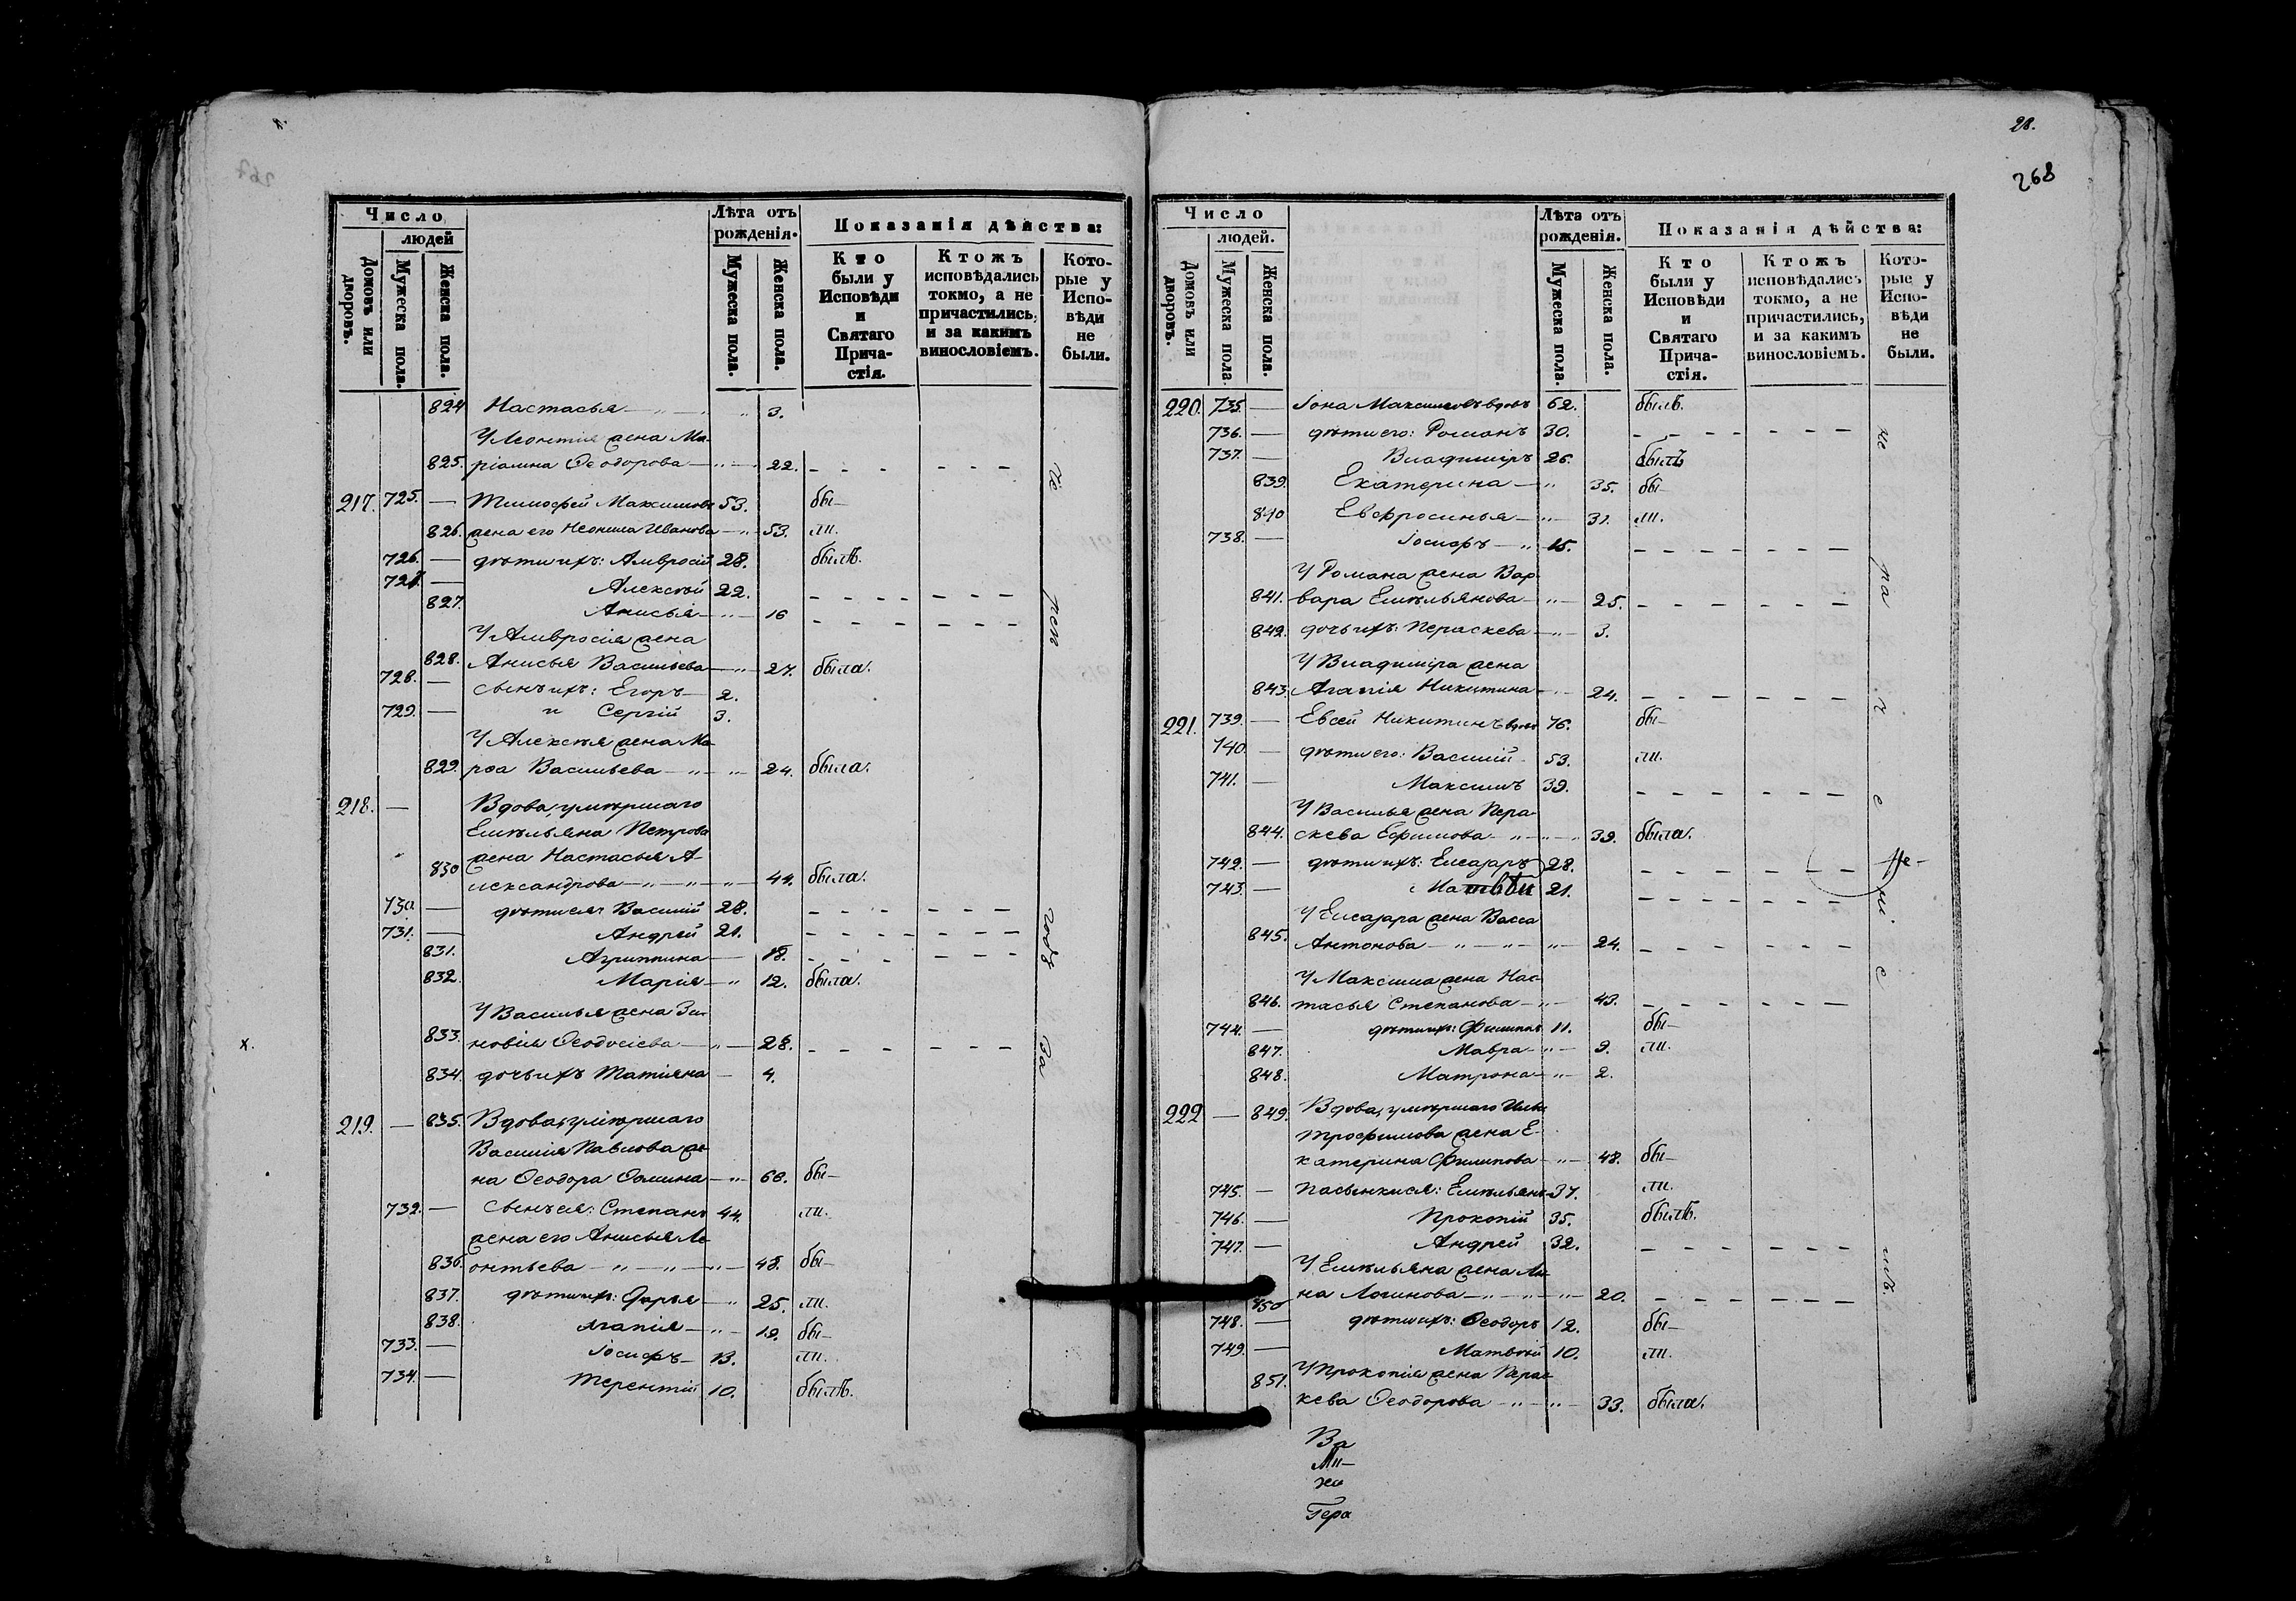 Число
людей
Домовъ или дворовъ.
Мужеска пола.
Женска пола.
Лѣта отъ рожденія.
Мужеска пола.
Женска пола.
Показанія дѣйства:
Кто были у Исповѣди и Святаго Причастія.
Ктожъ исповѣдались токмо, а не причастились, и за какимъ винословіемъ.
Которые у Исповѣди не были.
824 Настасья — „ — „ „ 3.
У Леонтія жена Ма-
825. ріамна Ѳеодорова — „ — 22. — — — — — —
217. 725. — Тимоѳей Максимовъ 53. бы-
826. жена его Неонила Иванова — „ — 53. ли.
726. — дѣти ихъ: Амвросій 28. былъ.
727. — Алексѣй 22. — — — — — — —
827. Анисья — „ — 16 — — — — — — —
У Амвросія жена
828. Анисья Васильева — „ — 27. была.
728. — сынъ ихъ: Егоръ — 2.
729. — и Сергій 3.
У Алексѣя жена Ма-
829. рѳа Васильева — „ — „ — 24. была.
218. — Вдова, умѣршаго
Емѣльяна Петрова
жена Настасья А-
830 лександрова — „ — „ — „ — 44. была.
730. — дѣти ея: Василій 28. — — — — — —
731. — Андрей 21. — — — — — — —
831. Агриппина — 18. — — — — — —
832. Марія — „ 12. была.
У Василья жена Зи-
833. новія Ѳеодосіева — „ — 28. — — — — — —
834. дочь ихъ Татіяна — 4.
219. — 835. Вдова, умѣршаго
Василія Павлова же-
на Ѳеодора Ѳомина — „ — 60. бы-
732. — сынъ ея: Степанъ 44. ли.
жена его Анисья Ле-
836. онтьева — „ — „ — „ — 48. бы-
837. дѣти ихъ: Дарья — „ 25. ли.
838. Агапія — „ — 19. бы-
733. — Іосифъ — 13. ли.
734. — Терентій 10. былъ.
За
28.
268
Число
людей.
Домовъ или дворовъ.
Мужеска пола.
Женска пола.
Лѣта отъ рожденія.
Мужеска пола.
Женска пола.
Показанія дѣйства:
Кто были у Исповѣди и Святаго Причастія.
Ктожъ исповѣдались токмо, а не причастились, и за какимъ винословіемъ.
Которые у Исповѣди не были.
220. 735. — Іона Максимовъ вдовъ 62. былъ.
736. — дѣти его: Романъ 30. — — — — — — —
737. — Владиміръ 26. былъ
839. Екатерина — „ 35. бы-
840 Евфросинья — „ — 31. ли.
738. — Іосифъ — „ 15. — — — — — — —
У Романа жена Вар-
841. вара Емѣльянова — „ — 25. — — — — — —
842. дочь ихъ: Параскева — „ — 3.
У Владиміра жена
843. Агапія Никитина — „ — 24. — — — — — —
221. 739. — Евсей Никитинъ вдовъ 76. бы-
740. — дѣти его: Василій 53. ли.
741. — Максимъ 39. — — — — — — —
У Василья жена Пера-
844. скева Ефимова — „ — „ — „ 39. была.
742. — дѣти ихъ: Елеазаръ 28. — — — — — — —
743. — Матвѣй 21. — — — — — — —
У Елеазара жена Васса
845. Антонова — „ — „ — „ — 24. — — — — — —
У Максима жена Нас-
846. тасья Степанова — „ — 43. — — — — — —
744. — дѣти ихъ: Филиппъ 11. бы-
847. Мавра — „ — 9. ли.
848. Матрона — „ — 2.
222 — 849. Вдова, умѣршаго Ильи
Трофимова жена Е-
катерина Филипова — „ — 48. бы-
745. — пасынки ея: Емѣльянъ 37. ли.
746. — Прокопій 35. былъ.
747. — Андрей 32. — — — — — — —
У Емѣльяна жена Ан-
850 на Логинова — „ — „ — „ — 20. — — — — — — —
748. — дѣти ихъ: Ѳеодоръ 12. бы-
749. — Матвѣй 10. ли.
У Прокопія жена Парас-
851. кева Ѳеодорова — „ — „ — 33. была.
Ва
Ми-
ха
Гера